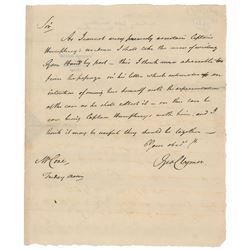 Sir
As I cannot very precisely ascertain Captain
Humphrey's residence I shall take the means of writing
by post – this I think more advisable
from his passage in his letter which intimates an
intention of coming here himself with the representation
of the case as he shall collect it – in this case he
can bring Captain Humphreys with him, and I
think it may be useful they should be together –
Your obedt
Geo Clymer
Mr Coxe
Friday